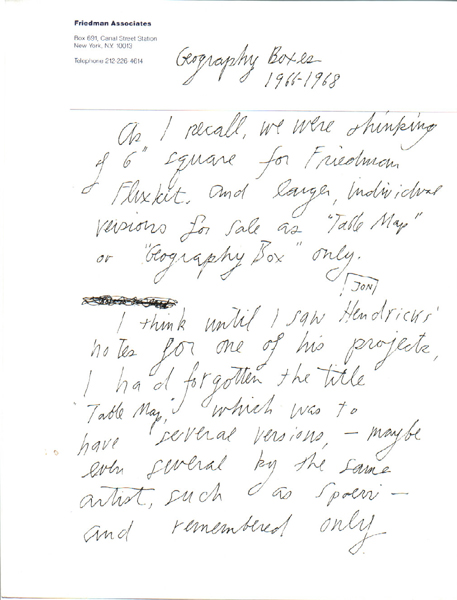 Friedman Associates
Box 691, Canal Street Station
New York, NY 10013
Telephone 212 226-4614
Geography Boxes
1966-1968
As I recall, we were thinking
of 6" square for Friedman
Fluxkit, and larger, individual
versions for sale as "Table Map"
or "Geography Box" only.
JON
I think until I saw Hendricks'
notes for one of his projects,
I had forgotten the title
"Table Map," which was to
have several versions, - maybe
even several by the same
artist, such as Spoerri -
and remembered only